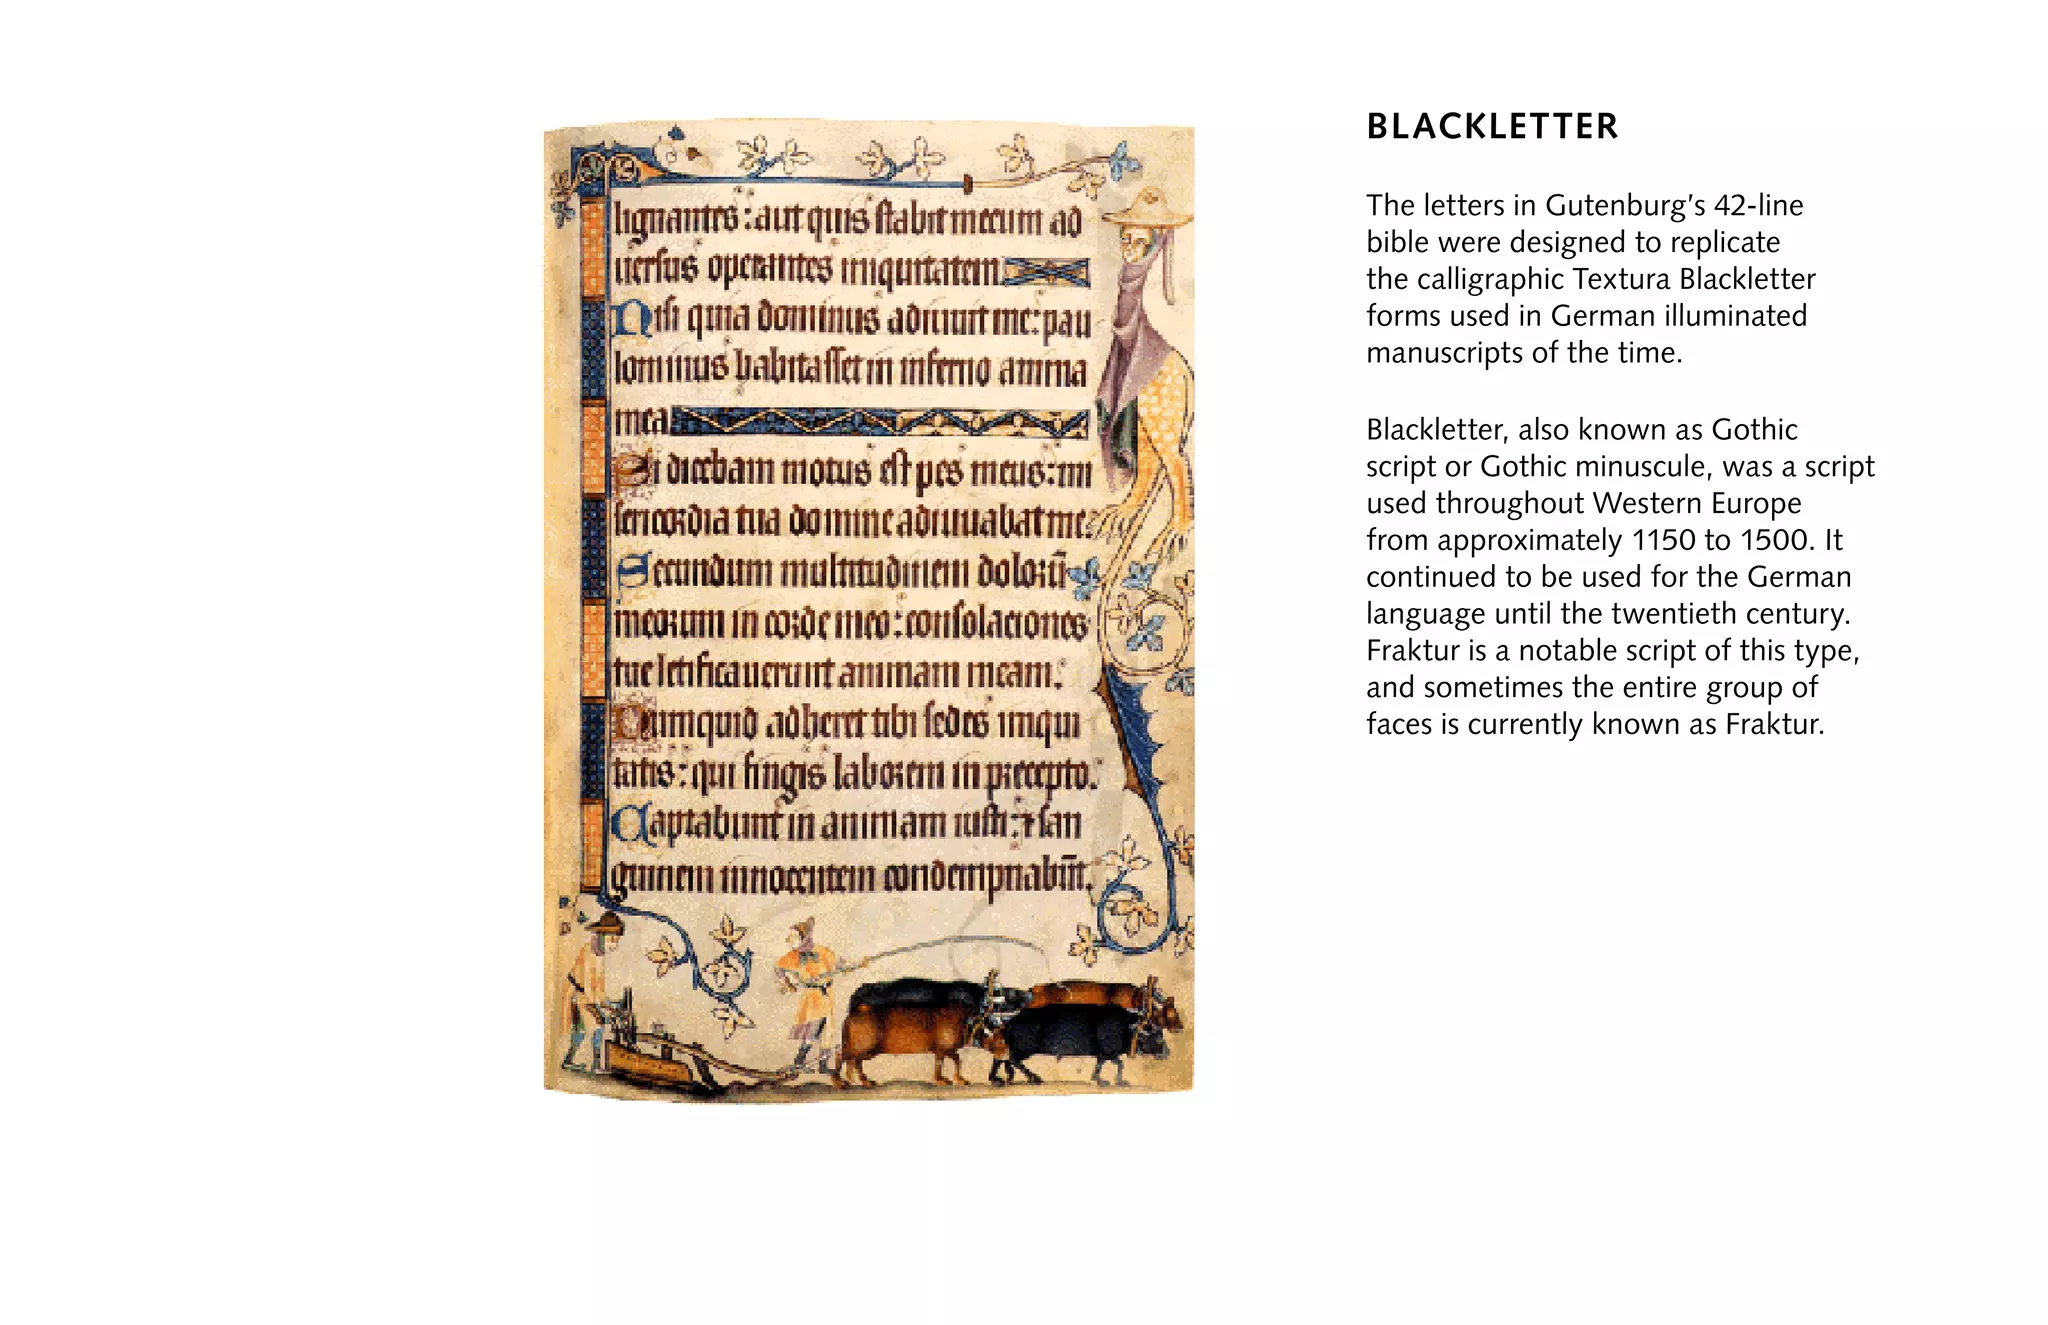 lignantes : aut quis stabit mecum ad
uersus operantes iniquitatem.
Nisi quia dominus adiuuit me : pau
lominus habitasset in inferno anima
mea
Si dicebam motus est pes meus : mi
sericordia tua domine adiuuabat me :
Secundum multitudinem dolorū
meorum in corde meo : consolaciones
tue letificauerunt animam meam :
Numquid adheret tibi sedes iniqui
tatis : qui fingis laborem in precepto.
Captabunt in animam iusti : ⁊ san
guinem innocentem condempnabūt.
BLACKLETTER
The letters in Gutenburg’s 42-line
bible were designed to replicate
the calligraphic Textura Blackletter
forms used in German illuminated
manuscripts of the time.
Blackletter, also known as Gothic
script or Gothic minuscule, was a script
used throughout Western Europe
from approximately 1150 to 1500. It
continued to be used for the German
language until the twentieth century.
Fraktur is a notable script of this type,
and sometimes the entire group of
faces is currently known as Fraktur.